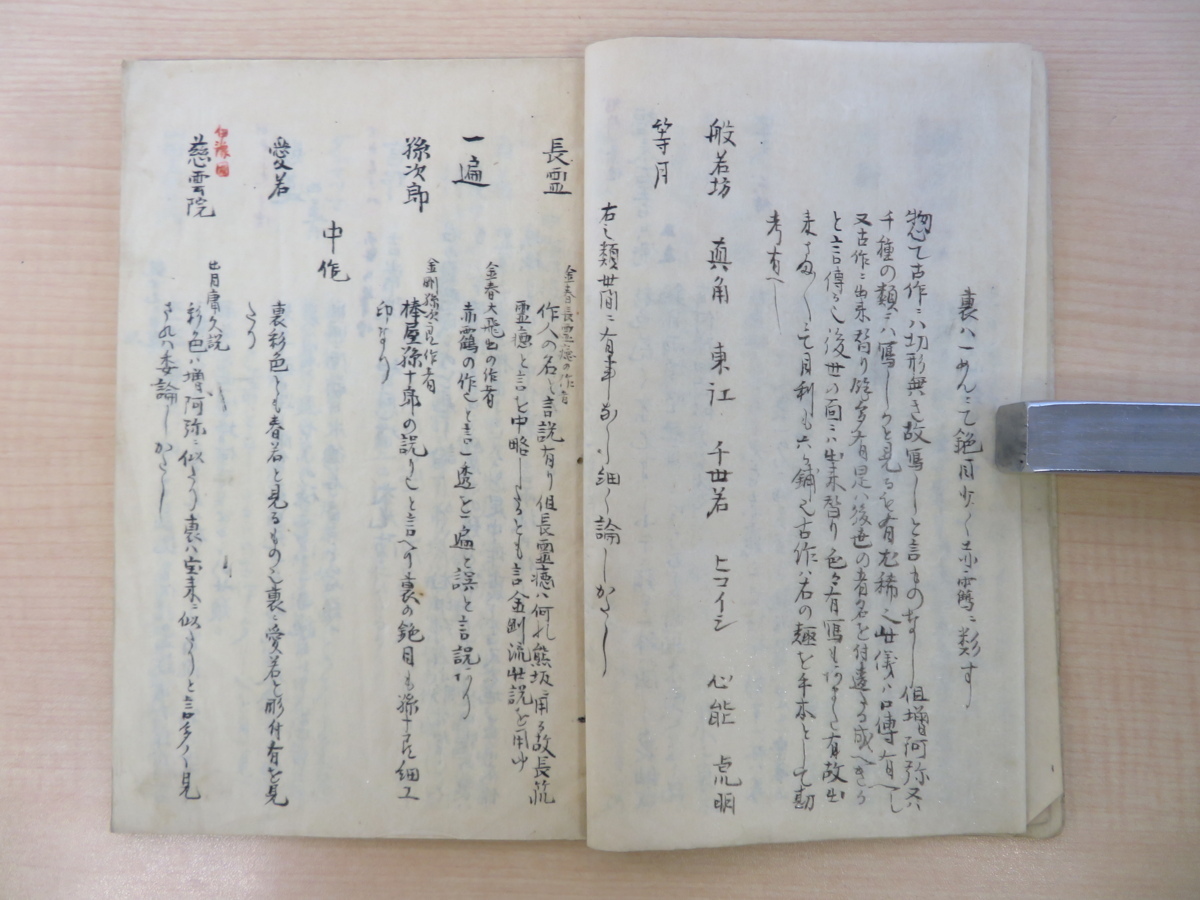 裏ハ一めんニて鉋目少く赤靏ニ類す
惣て古作ニハ切形無き故寫しと言ものなし但増阿弥又ハ
千種の類ニハ寫しかと見るも有尤稀也此儀ハ口傳有へし
又古作ニ出来替り段多有是ハ後世の者名を付違たる成へきか
と言傳る也後世の面ニハ出来替り色々有寫も有故出
来て目利も六ヶ鋪也古作ハ右の趣を手本として勘
考有へし
般若坊 真角 東江 千世若 ヒコイシ 心能 虎明
等月
右之類世間ニ有事なし細く論しかたし
長霊
金春長霊癋の作者
作人の名と言説有り但長霊癋ハ何れ熊坂ニ用る故長範
霊癋と言を中略したるとも言金剛流此説を用ゆ
一遍
金春大飛出の作者
赤靏の作也と言一透を一遍と誤と言説あり
孫次郎
金剛孫次郎作者
棒屋孫十郎の誤り也と言へり裏の鉋目も孫十郎細工
印なり
中作
愛若
裏彩色とも春若と見るもの也裏ニ愛若と彫付有を見
たり
慈雲院
廿月庸久説
彩色ハ増阿弥ニ似たり裏ハ宝来ニ似たりと言多く見
されハ委論しかたし